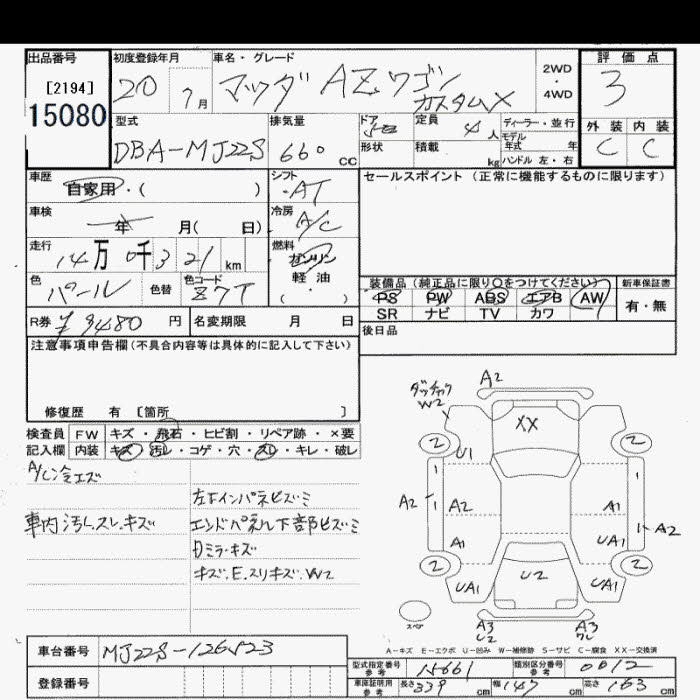 出品番号 初度登録年月 車名・グレード 評価点
[2194] 20 7月 マツダ AZワゴン 2WD・4WD 3
15080 カスタムX
型式 排気量 ドア 定員 ディーラー・並行 外装 内装
DBA-MJ22S 660 CC 形状 積載 4人 kg モデル年式 年 ハンドル 左・右 C C
車歴 自家用・( ) シフト AT セールスポイント (正常に機能するものに限ります)
車検 年 月( 日) 冷房 A/C
走行 14万0千321km 燃料 ガソリン
軽油
・( )
色 パール 色替 色コード Z7T 装備品(純正品に限り○をつけてください) 新車保証書
PS PW ABS エアB AW 有・無
SR ナビ TV カワ
R券 ¥9480円 名変期限 月 日 後日品
注意事項申告欄(不具合内容等は具体的に記入して下さい)
修復歴 有 [箇所 ]
検査員 FW キズ・飛石・ヒビ割・リペア跡・×要
記入欄 内装 キズ・汚レ・コゲ・穴・スレ・キレ・破レ
A/C冷エズ
左下インパネヒズミ
車内汚レ.スレ.キズ エンドパネル下部ヒズミ
ミラーキズ
キズ.E.スリキズ.W2
A2
W2
XX
2 2
U1
A2 A2 A1 A2
A1 UA1
2 2
UA1 U2 UA1
スペア A3 A3
U2
A-キズ E-エクボ U-凹み W-補修跡 S-サビ C-腐食 XX-交換済
車台番号 MJ22S-126523
登録番号
型式指定番号 参考 15661 類別区分番号 参考 0012
車庫証明用 参考 長さ 339cm 幅 147cm 高さ 163cm